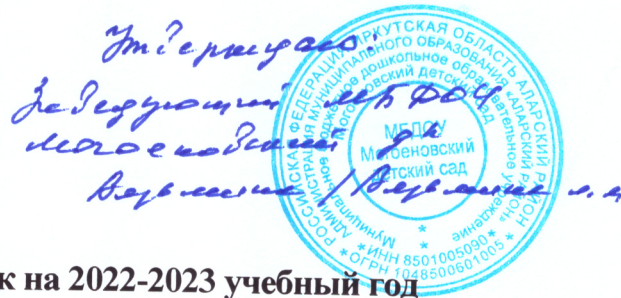 Утверждаю:
Заведующий МБДОУ
Могоеновский д/с
РОССИЙСКАЯ ФЕДЕРАЦИЯ ИРКУТСКАЯ ОБЛАСТЬ АЛАРСКИЙ РАЙОН
АДМИНИСТРАЦИЯ МУНИЦИПАЛЬНОГО ОБРАЗОВАНИЯ «АЛАРСКИЙ РАЙОН»
Муниципальное бюджетное дошкольное образовательное учреждение Могоеновский детский сад
МБДОУ
Могоеновский
детский сад
* ИНН 8501005090 *
* ОГРН 1048500601005 *
к на 2022-2023 учебный год